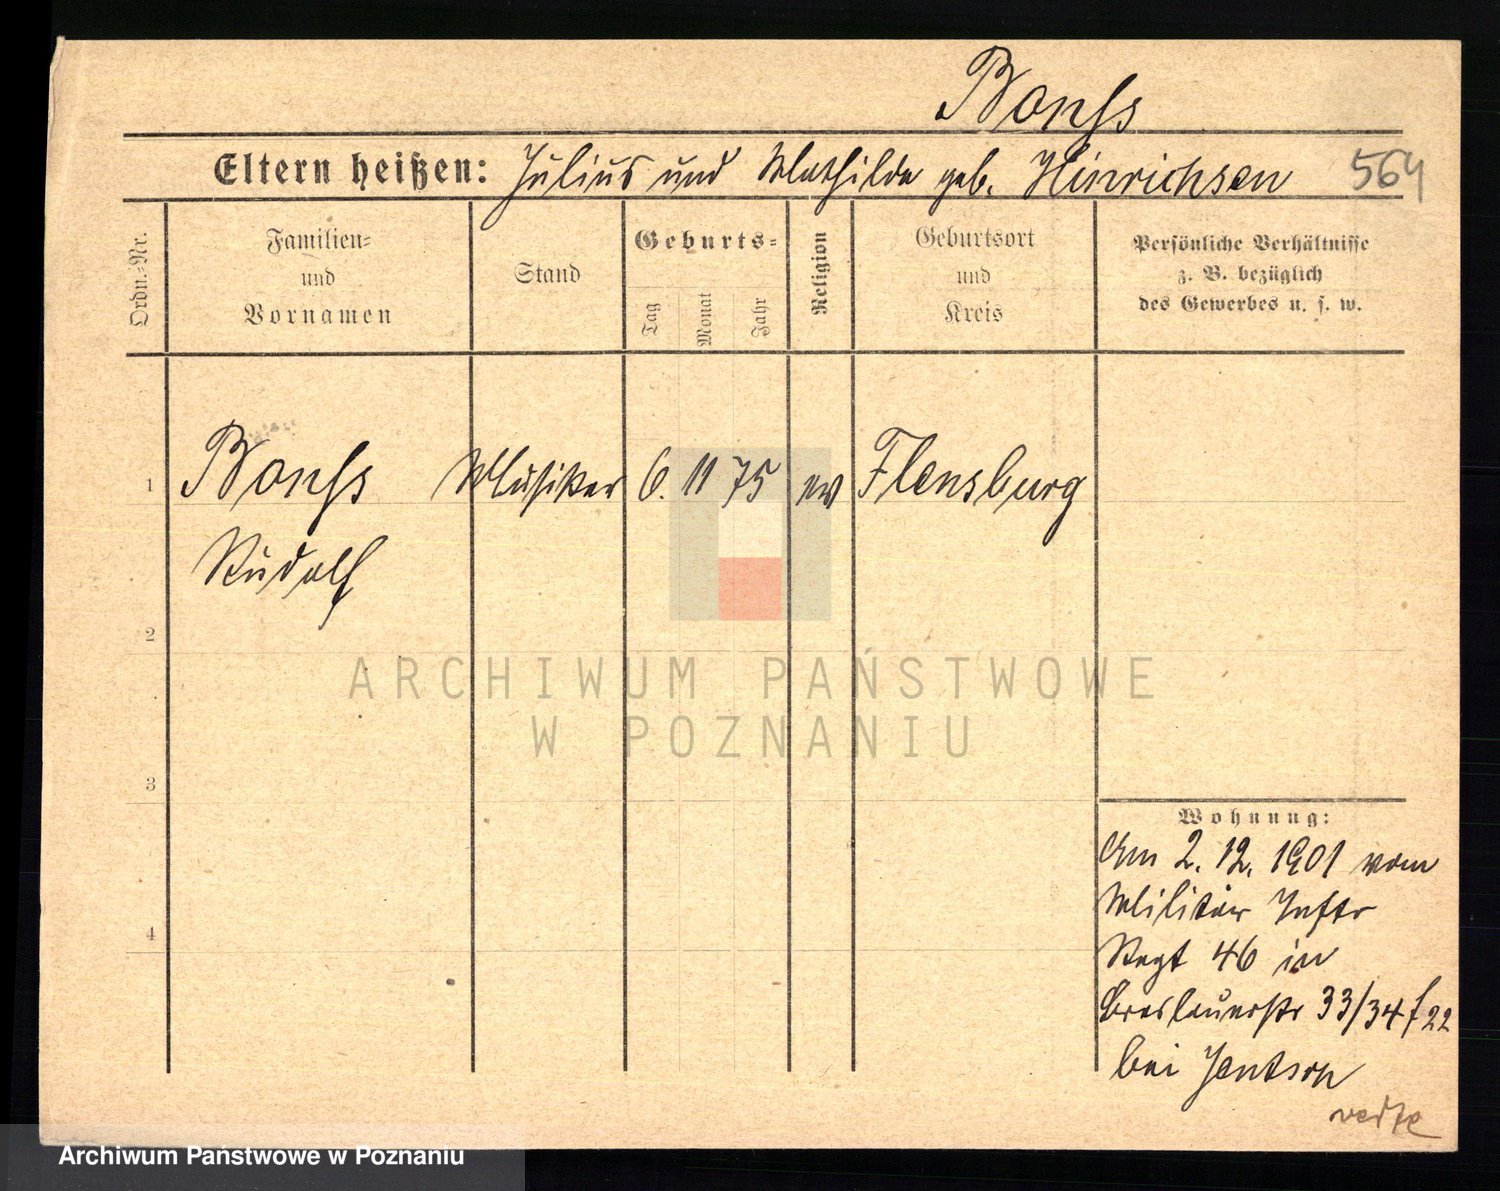 Bonhs
Eltern heißen: Julius und Mathilde geb. Hinrichsen 564
Ordn.-Nr.
Familien- und Vornamen
Stand
Geburts-
Tag
Monat
Jahr
Religion
Geburtsort und Kreis
Persönliche Verhältnisse
z. B. bezüglich
des Gewerbes u. s. w.
1 Bonhs Musiker 6. 11 75 ev Flensburg
Rudolf
2
3
4
Wohnung:
Am 2. 12. 1901 vom
Militär Inftr
Regt 46 in
Breslauerstr 33/34 f 22
bei Jentsch
verte
ARCHIWUM PAŃSTWOWE
W POZNANIU
Archiwum Państwowe w Poznaniu